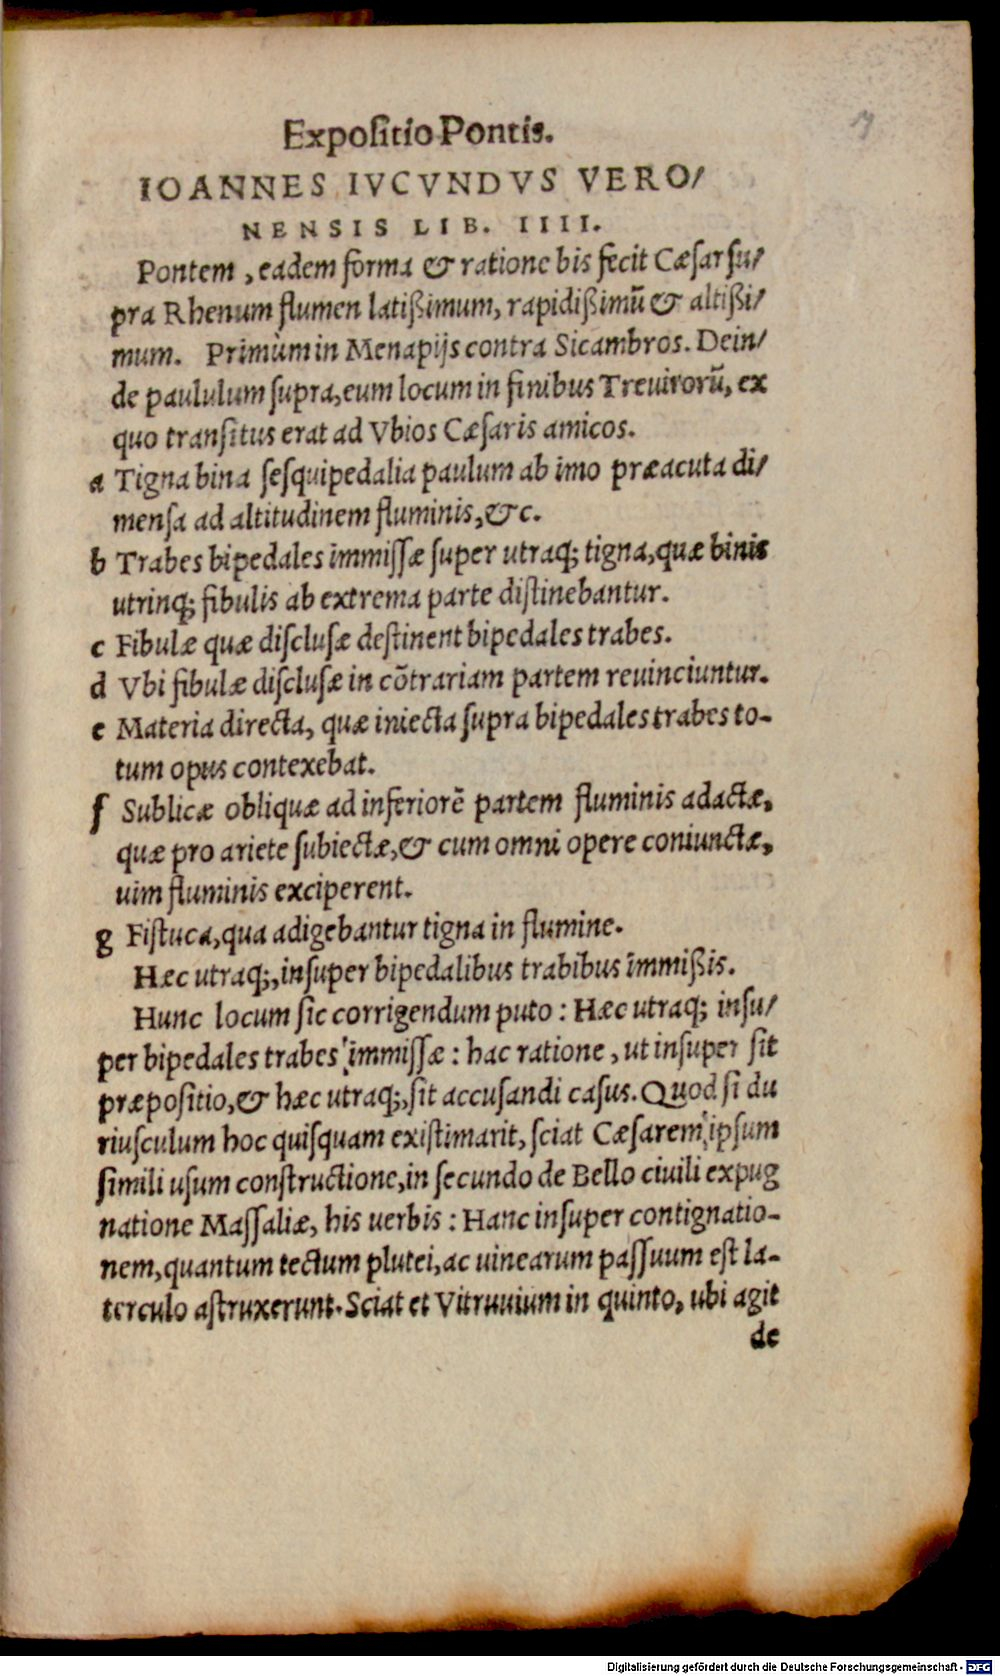 19
Expositio Pontis.
IOANNES IVCVNDVS VERO/
NENSIS LIB. IIII.
Pontem, eadem forma & ratione bis fecit Cæsar su/
pra Rhenum flumen latißimum, rapidißimū & altißi/
mum. Primùm in Menapijs contra Sicambros. Dein/
de paululum supra, eum locum in finibus Trevirorū, ex
quo transitus erat ad Vbios Cæsaris amicos.
a Tigna bina sesquipedalia paulum ab imo præacuta di/
mensa ad altitudinem fluminis, &c.
b Trabes bipedales immissæ super utraq; tigna, quæ binis
utrinq; fibulis ab extrema parte distinebantur.
c Fibulæ quæ disclusæ destinent bipedales trabes.
d Vbi fibulæ disclusæ in cōtrariam partem reuinciuntur.
e Materia directa, quæ iniecta supra bipedales trabes to-
tum opus contexebat.
f Sublicæ obliquæ ad inferiorē partem fluminis adactæ,
quæ pro ariete subiectæ, & cum omni opere coniunctæ,
uim fluminis exciperent.
g Fistuca, qua adigebantur tigna in flumine.
Hæc utraq;, insuper bipedalibus trabibus immißis.
Hunc locum sic corrigendum puto: Hæc utraq; insu/
per bipedales trabes immissæ: hac ratione, ut insuper sit
præpositio, & hæc utraq;, sit accusandi casus. Quod si du
riusculum hoc quisquam existimarit, sciat Cæsarem ipsum
simili usum constructione, in secundo de Bello ciuili expug
natione Massaliæ, his uerbis: Hanc insuper contignatio-
nem, quantum tectum plutei, ac uinearum passuum est la-
terculo astruxerunt. Sciat et Vitruuium in quinto, ubi agit
de
Digitalisierung gefördert durch die Deutsche Forschungsgemeinschaft - DFG